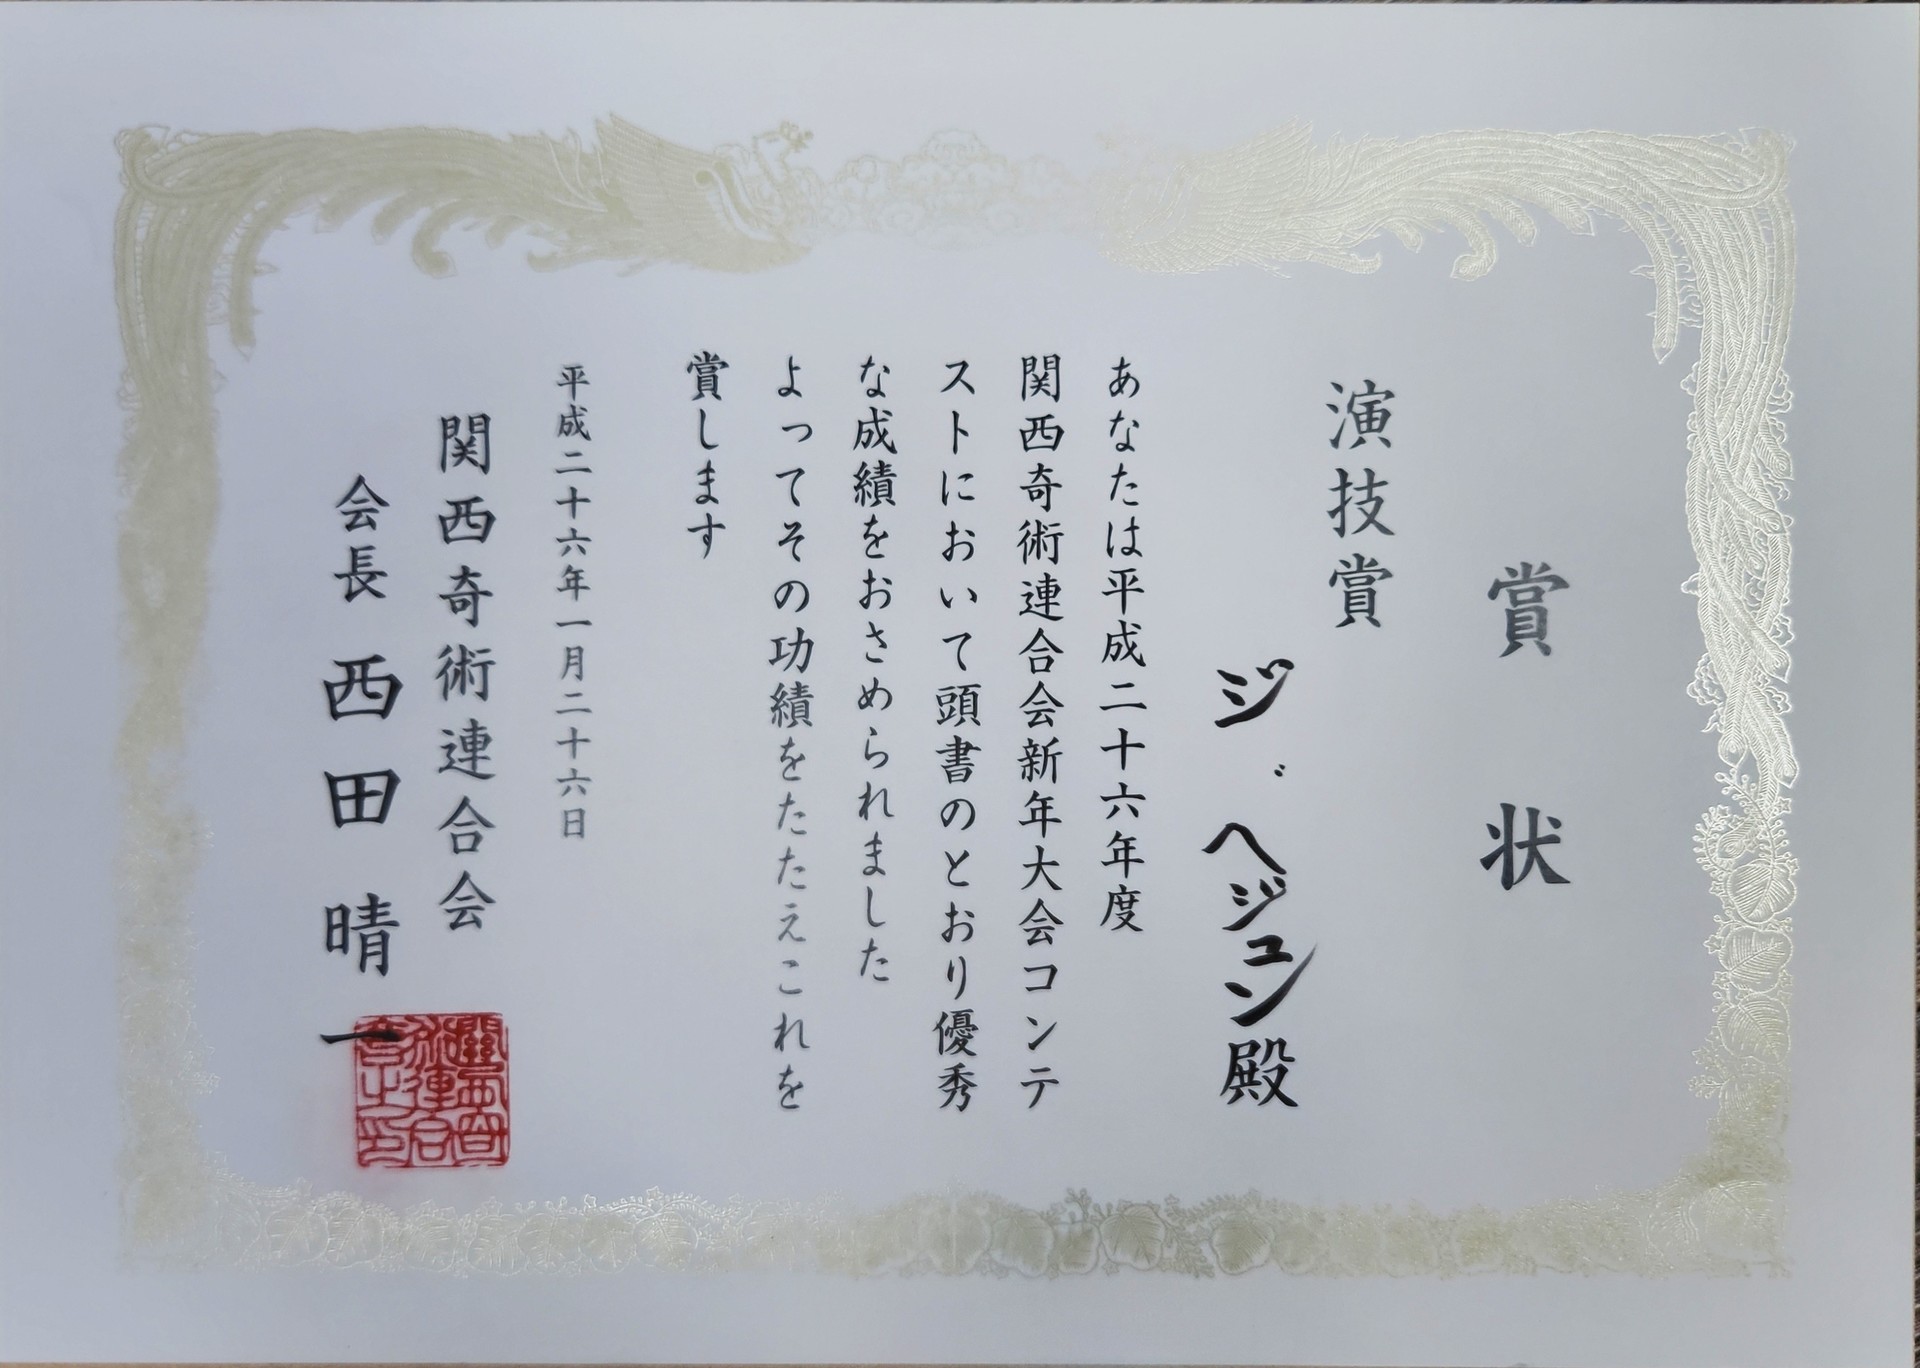 賞状
演技賞
ジ゛ヘジュン殿
あなたは平成二十六年度
関西奇術連合会新年大会コンテ
ストにおいて頭書のとおり優秀
な成績をおさめられました
よってその功績をたたえこれを
賞します
平成二十六年一月二十六日
関西奇術連合会
会長 西田晴一